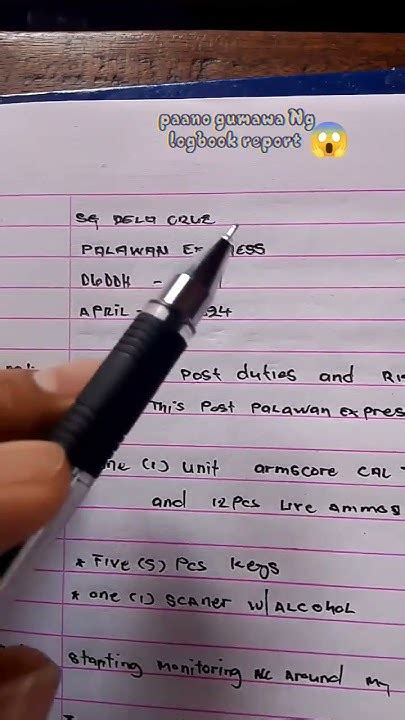 paano gumawa Ng
logbook report
SG DELA CRUZ
PALAWAN
D6DDH -
APRIL - 24
Post duties and
This Post PALAWAN EXPRES
one (1) unit armscore CAL
and 12 Pcs Live Ammos
* Five (5) Pcs Keys
* one (1) SCANER W/ ALCOHOL
Starting Monitoring AC Around My